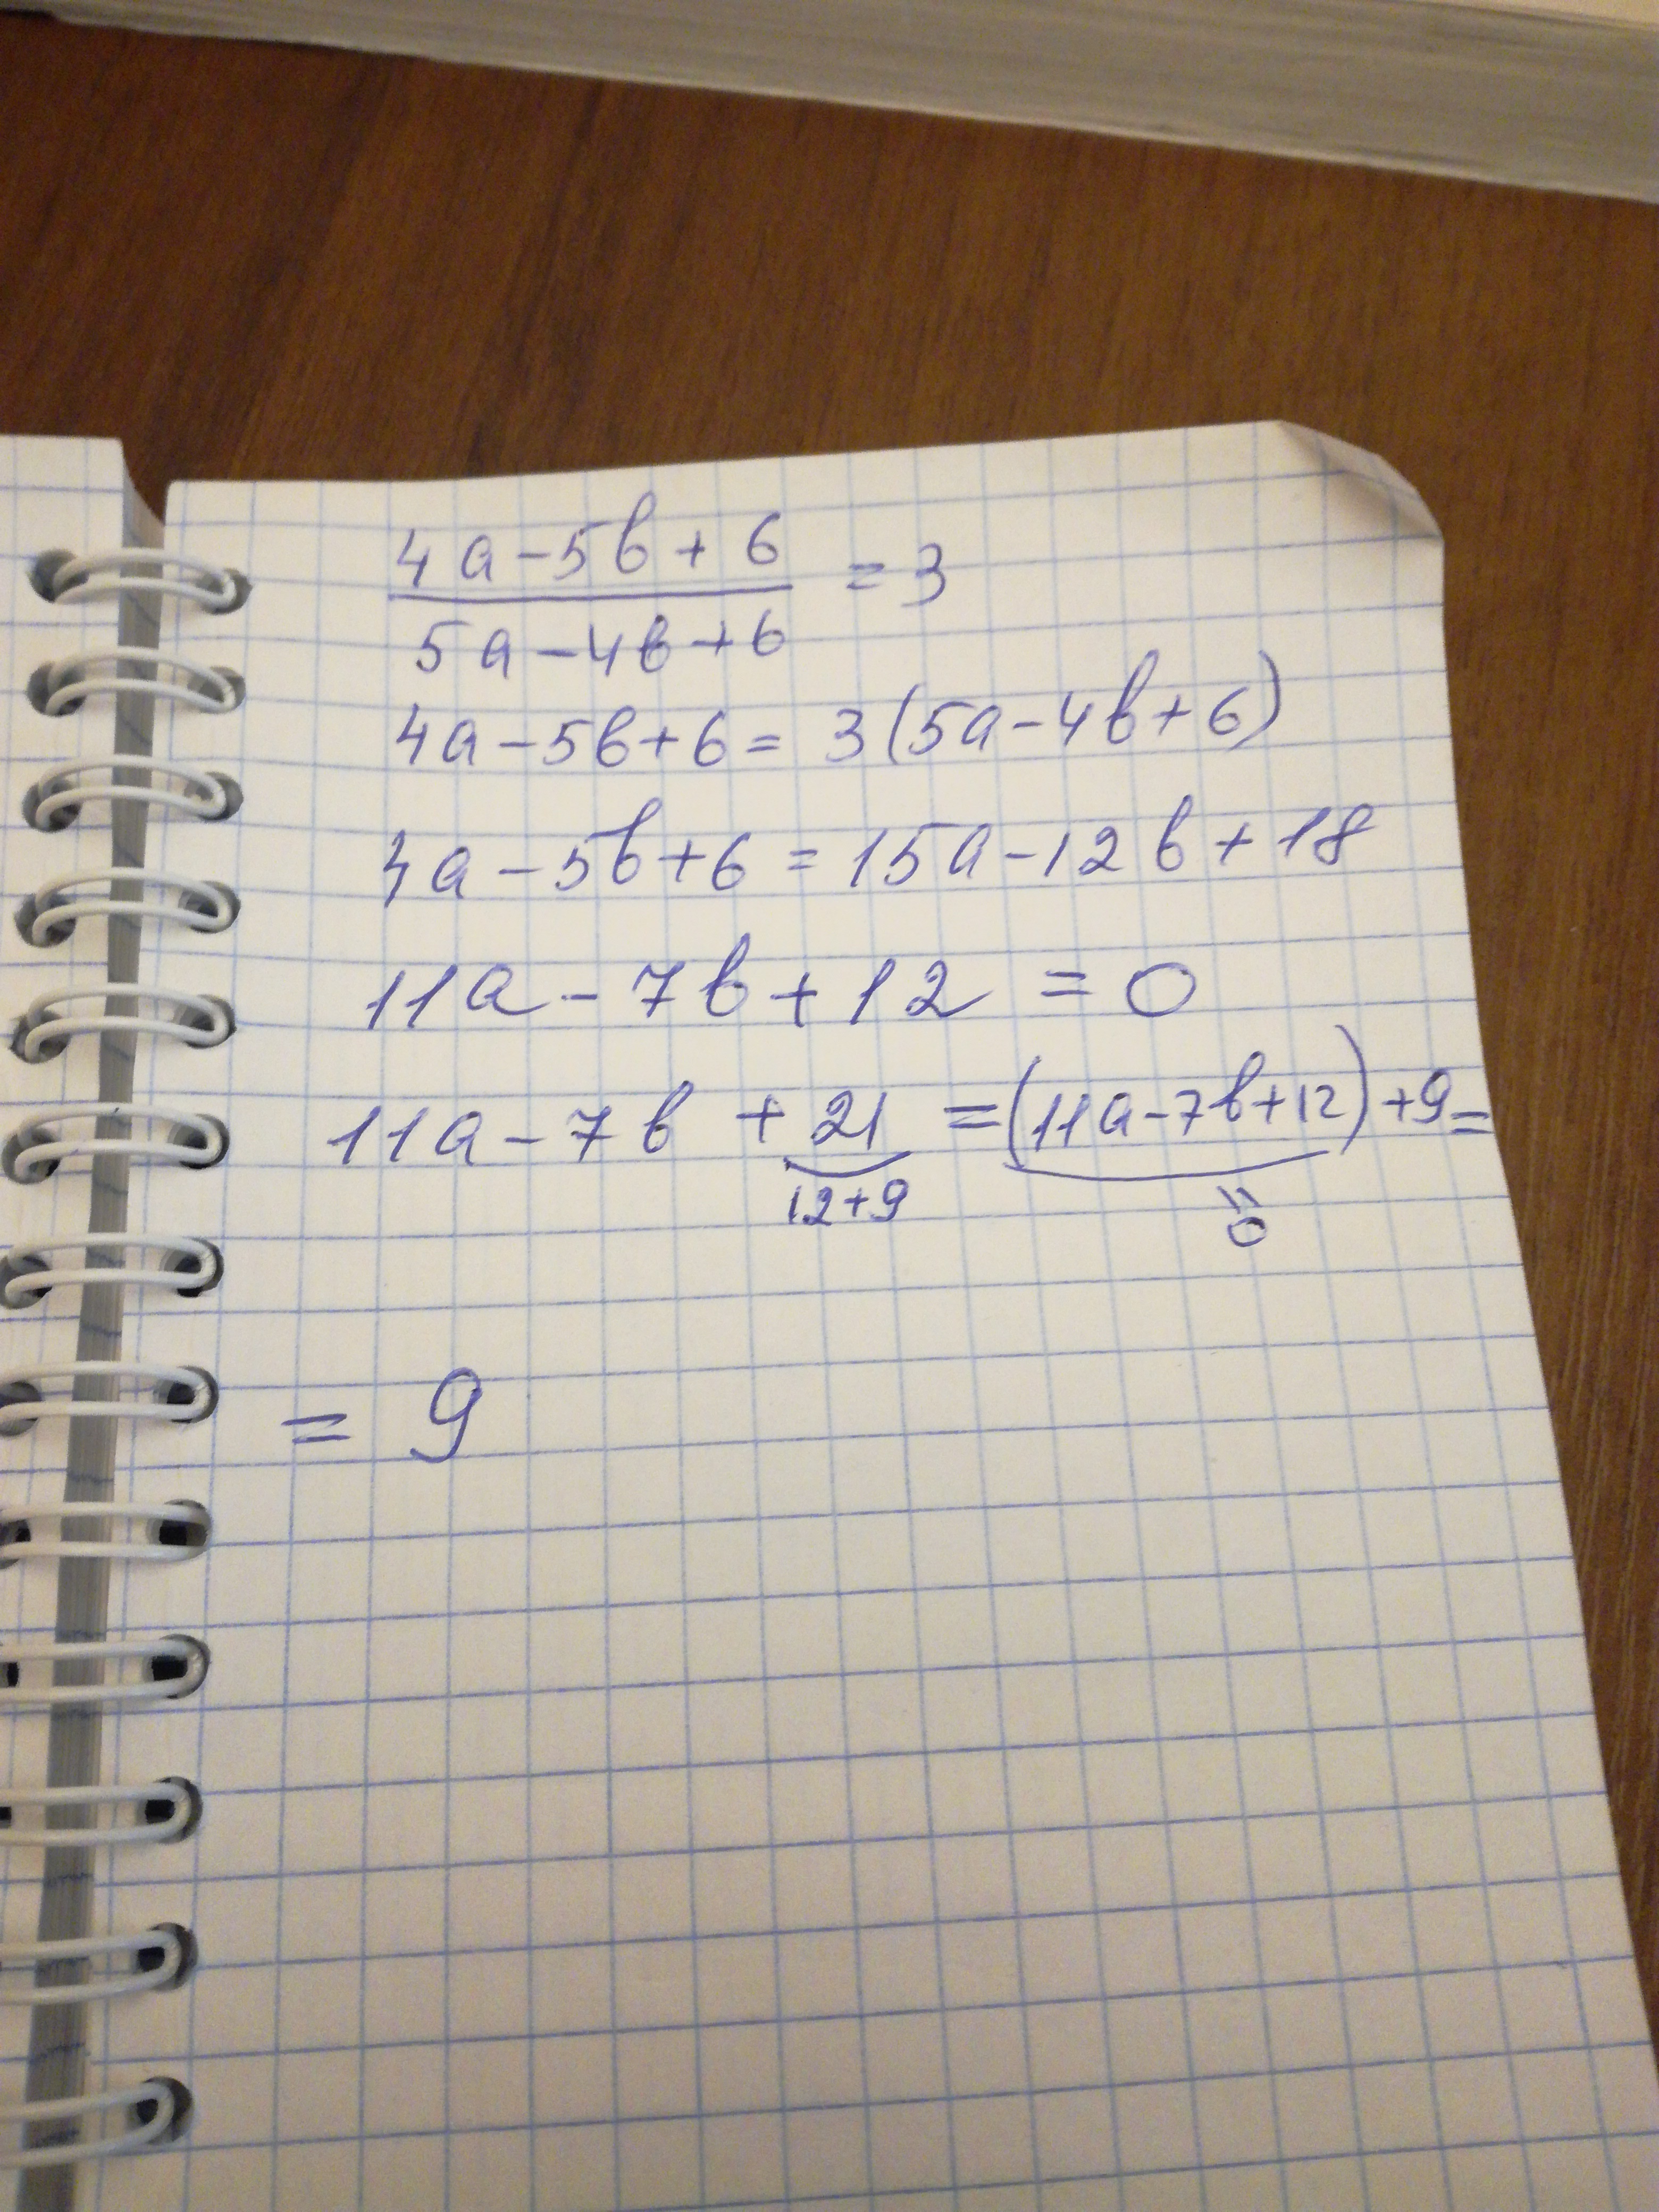 4a-5b+6 = 3
5a-4b+6
4a-5b+6= 3(5a-4b+6)
4a-5b+6=15a-12b+18
11a-7b+12 = 0
11a-7b +21 =(11a-7b+12)+9=
12+9 =0
= 9